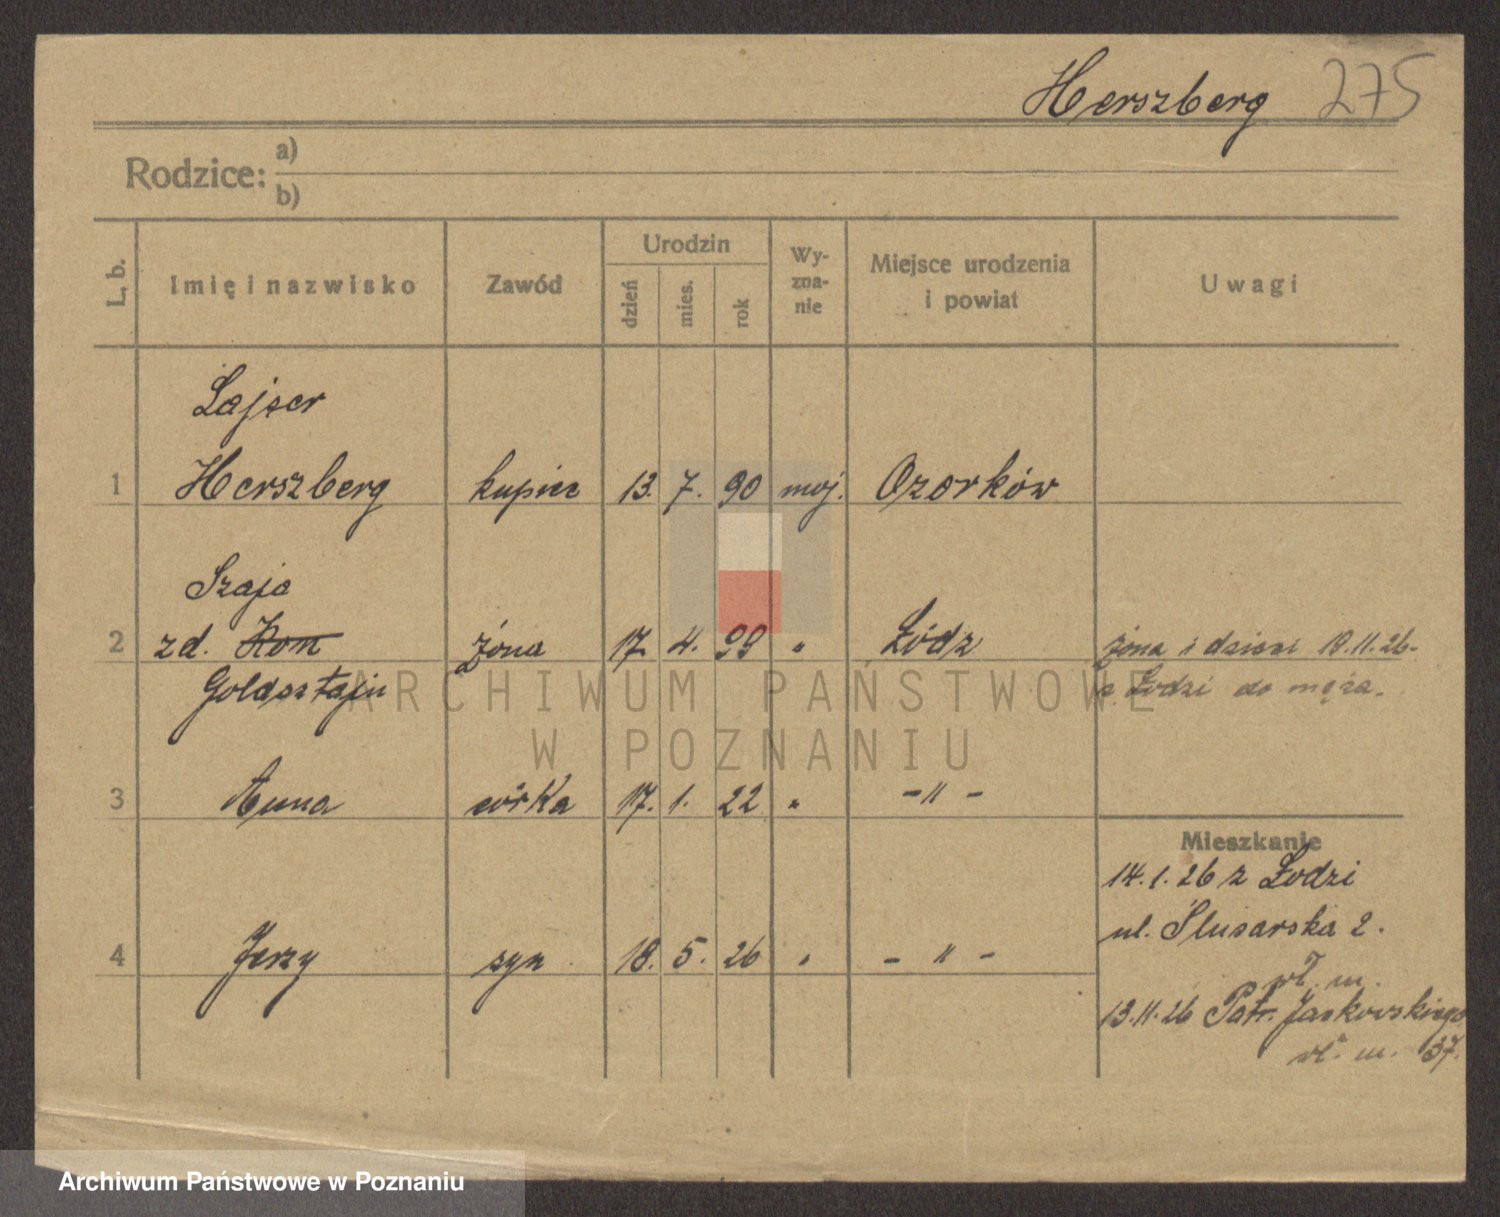 Herszberg 275
Rodzice: a)
b)
L. b. Imię i nazwisko Zawód Urodzin dzień mies. rok Wy-zna-nie Miejsce urodzenia i powiat Uwagi
Lajser
1 Herszberg kupiec 13. 7. 90 moj. Ozorków
Szaja
2 zd. Kon żona 17. 4. 99 " Łódz żona i dzieci 18.11.26-
Goldsztajn z Łodzi do męża.
ARCHIWUM PAŃSTWOWE
W POZNANIU
3 Anna córka 17. 1. 22 " -"-
Mieszkanie
14.1.26 z Łodzi
ul. Ślusarska 2.
4 Jerzy syn 18. 5. 26 " -"-
wł. m.
13.11.26 Patr. Jackowskiego
wł. m. 37.
Archiwum Państwowe w Poznaniu